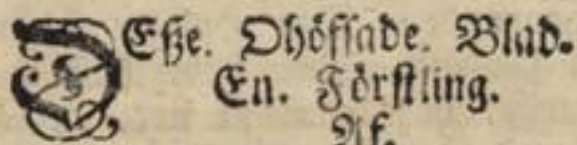 DEße. Ohöfſade. Blad.
En. Förſtling.
Af.